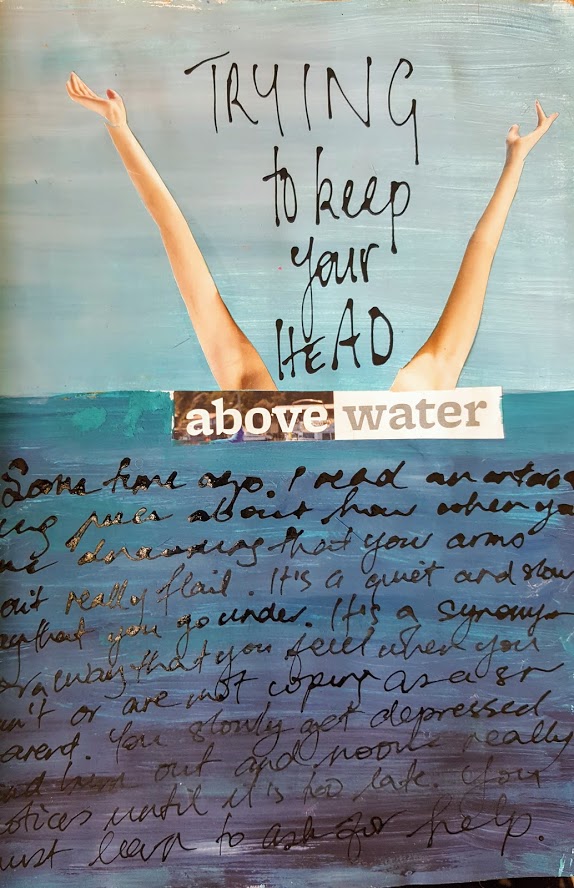 TRYING
to keep
your
HEAD
above water
Some time ago I read an interes
ing piece about how when you
are drowning that your arms
don't really flail. It's a quiet and slow
way that you go under. It's a synonym
for a way that you feel when you
can't or are not coping as a sn
parent. You slowly get depressed
and burn out and noone really
notices until it's too late. You
must learn to ask for help.